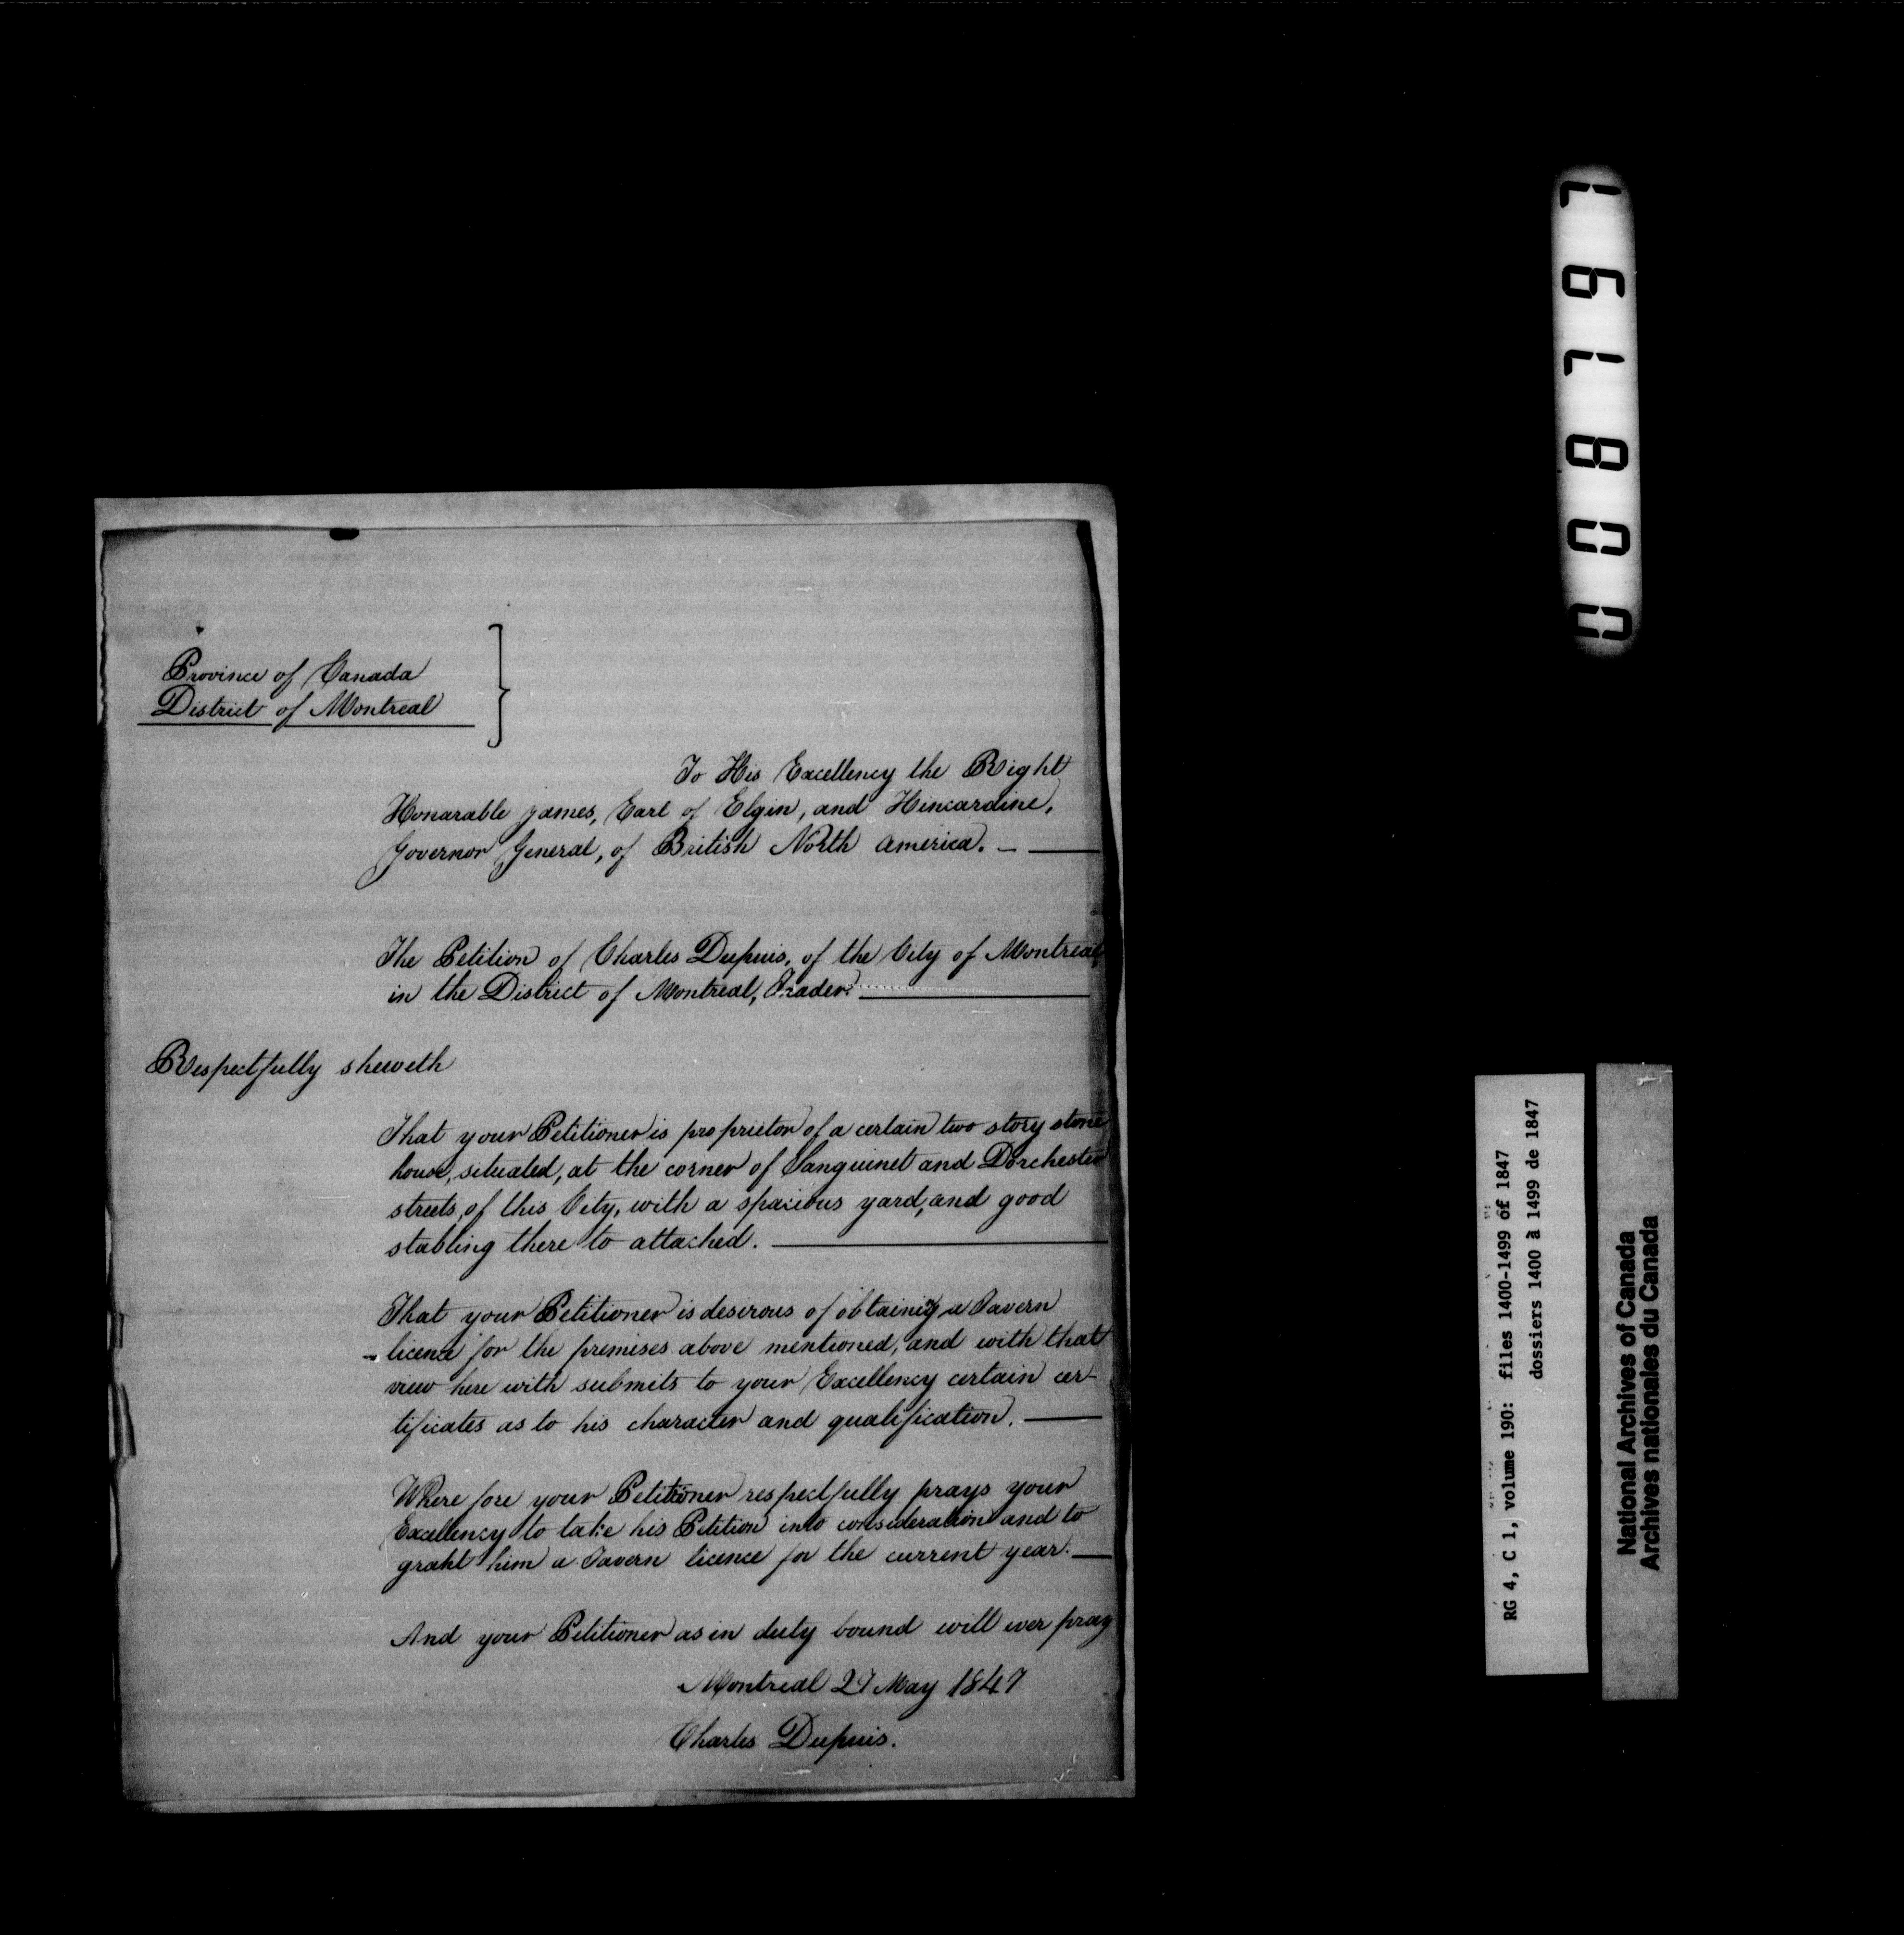 Province of Canada
District of Montreal
To His Excellency the Right
Honarable james, Earl of Elgin, and Hincardine,
Governor General, of British North America.
The Petition of Charles Dupuis, of the City of Montreal,
in the District of Montreal, Trader.
Respectfully sheweth
That your Petitioner is proprietor of a certain two story stone
house, situated, at the corner of Sanguinet and Dorchester
streets, of this City, with a spacious yard, and good
stabling there to attached.
That your Petitioner is desirous of obtaining a Tavern
licence for the premises above mentioned, and with that
view here with submits to your Excellency certain cer-
tificates as to his character and qualification.
Where fore your Petitioner respectfully prays your
Excellency to take his Petition into consideration and to
graht him a Tavern licence for the current year.
And your Petitioner as in duty bound will ever pray
Montreal 27 May 1847
Charles Dupuis.
008197
RG 4, C 1, volume 190: files 1400-1499 of 1847
dossiers 1400 à 1499 de 1847
National Archives of Canada
Archives nationales du Canada